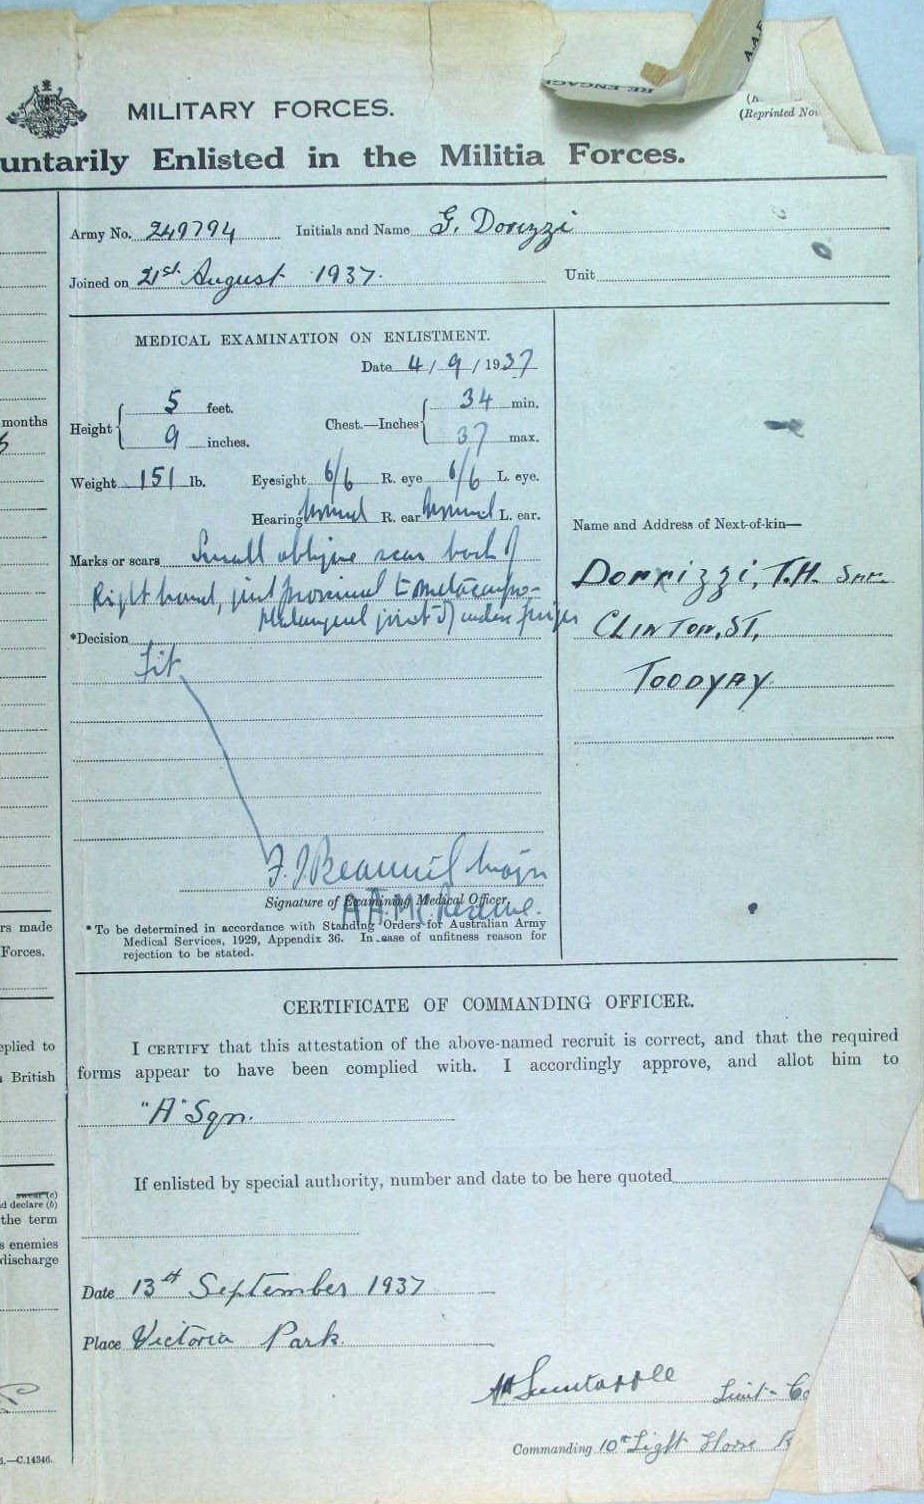 RE-ENGAGE
A.A.F.
MILITARY FORCES.
(Reprinted Nov
untarily Enlisted in the Militia Forces.
Army No. 249794 Initials and Name G. Dorizzi
Joined on 21st August 1937. Unit
MEDICAL EXAMINATION ON ENLISTMENT.
Date 4/9/1937
Height 5 feet. 9 inches. Chest.—Inches 34 min. 37 max.
Weight 151 lb. Eyesight 6/6 R. eye 6/6 L. eye.
Hearing Normal R. ear Normal L. ear.
Marks or scars Small oblique scar back of
Right hand, just proximal to metacarpo-
phalangeal joint of index finger
*Decision
Fit
Major
Signature of Examining Medical Officer.
A.A.M.C. Reserve.
* To be determined in accordance with Standing Orders for Australian Army
Medical Services, 1929, Appendix 36. In case of unfitness reason for
rejection to be stated.
Name and Address of Next-of-kin—
Dorrizzi, T.H. Snr.
CLINTON, ST,
TOODYAY
CERTIFICATE OF COMMANDING OFFICER.
I CERTIFY that this attestation of the above-named recruit is correct, and that the required
forms appear to have been complied with. I accordingly approve, and allot him to
"A" Sqn.
If enlisted by special authority, number and date to be here quoted
Date 13th September 1937
Place Victoria Park
Lieut-Co
Commanding 10th Light Horse R
months
rs made
Forces.
plied to
British
swear (c)
d declare (b)
the term
s enemies
discharge
.—C.14346.